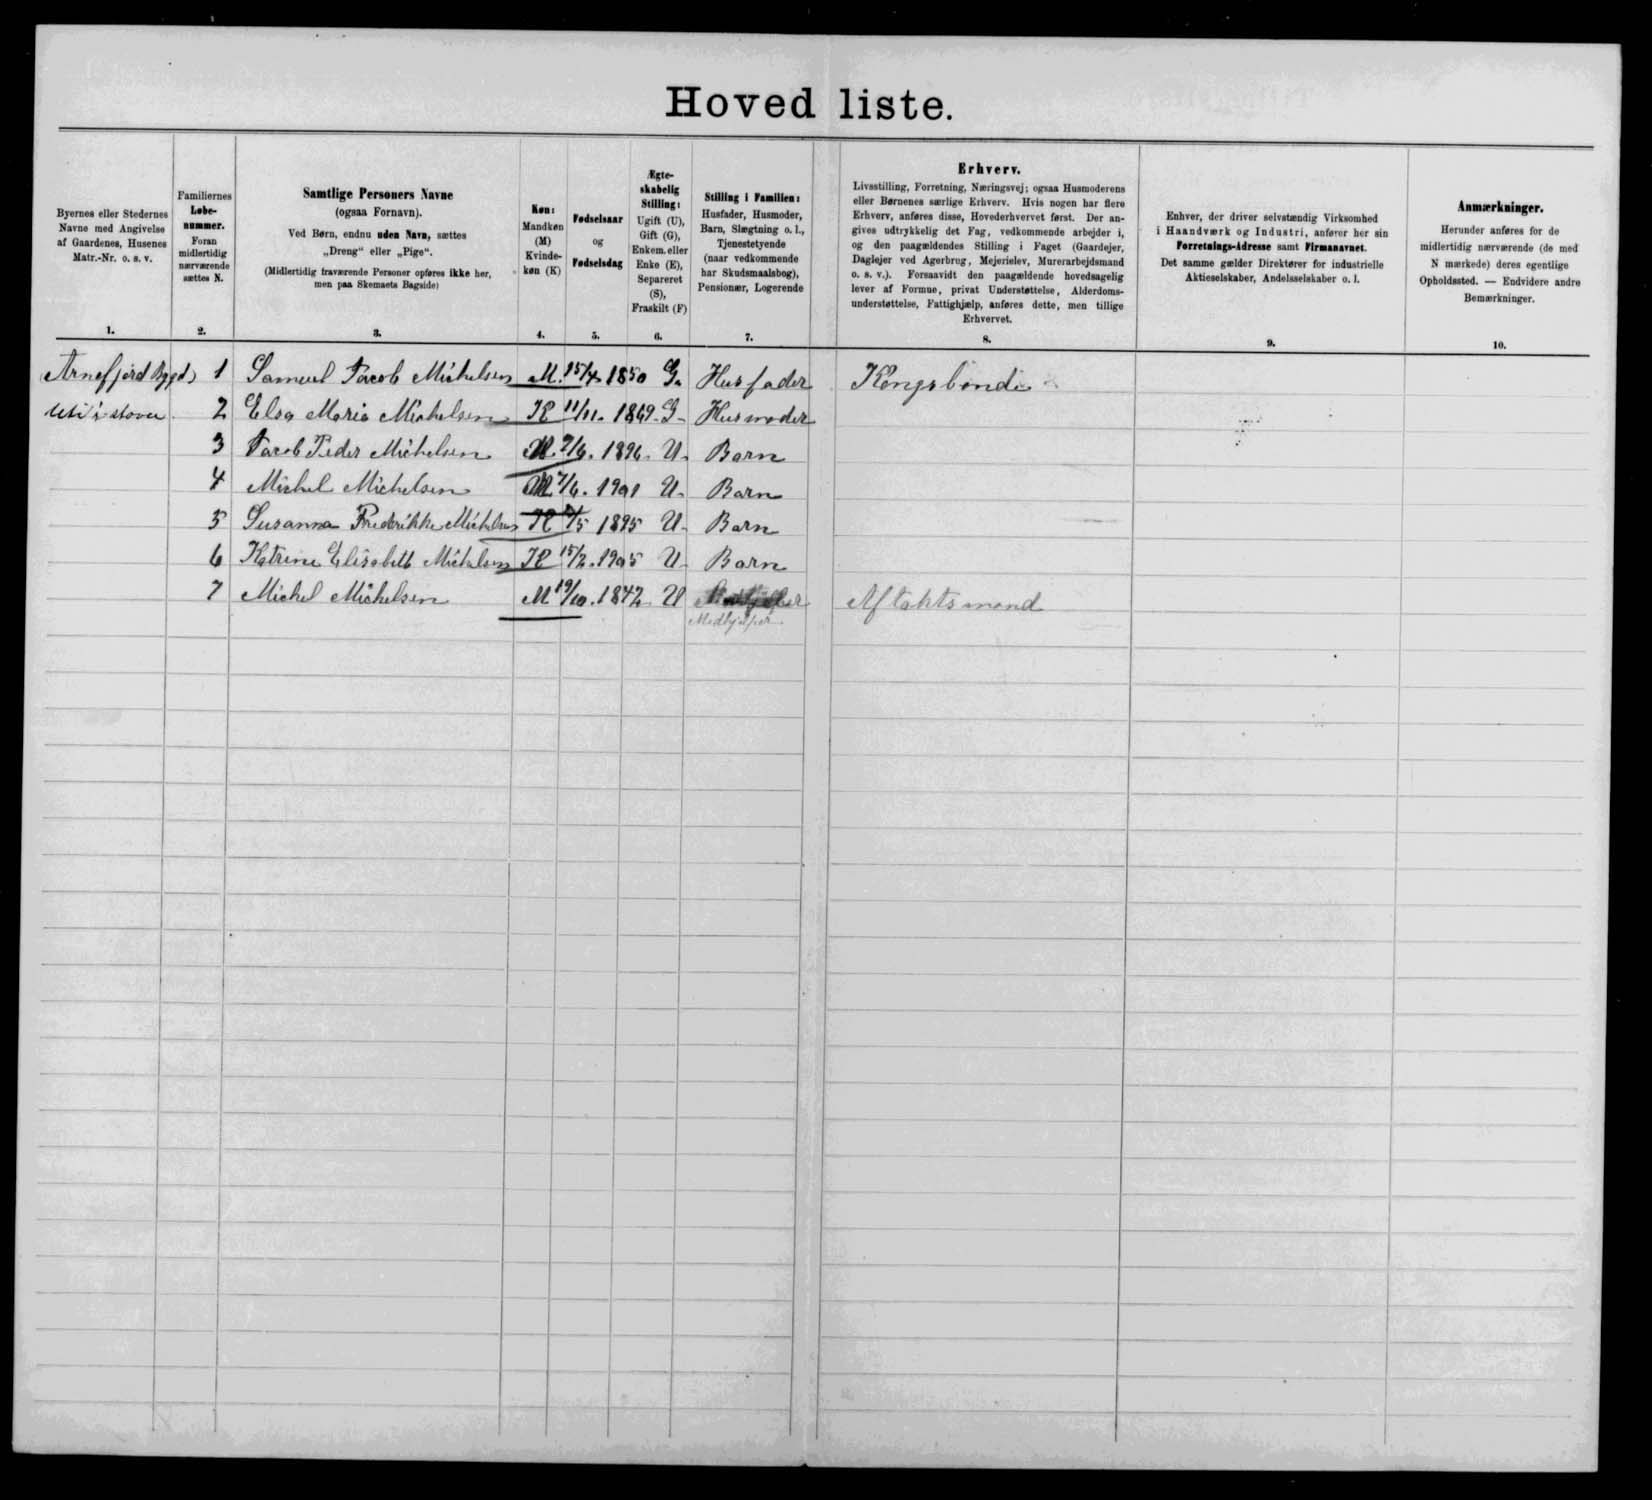 Hoved liste.
Byernes eller Stedernes
Navne med Angivelse
af Gaardenes, Husenes
Matr.-Nr. o. s. v.
1.
Familiernes
Løbe-
nummer.
Foran
midlertidig
nærværende
sættes N.
2.
Samtlige Personers Navne
(ogsaa Fornavn).
Ved Børn, endnu uden Navn, sættes
„Dreng“ eller „Pige“.
(Midlertidig fraværende Personer opføres ikke her,
men paa Skemaets Bagside)
3.
Køn:
Mandkøn
(M)
Kvinde-
køn (K)
4.
Fødselsaar
og
Fødselsdag
5.
Ægte-
skabelig
Stilling:
Ugift (U),
Gift (G),
Enkem. eller
Enke (E),
Separeret
(S),
Fraskilt (F)
6.
Stilling i Familien:
Husfader, Husmoder,
Barn, Slægtning o. l.,
Tjenestetyende
(naar vedkommende
har Skudsmaalsbog),
Pensionær, Logerende
7.
Erhverv.
Livsstilling, Forretning, Næringsvej; ogsaa Husmoderens
eller Børnenes særlige Erhverv. Hvis nogen har flere
Erhverv, anføres disse, Hovederhvervet først. Der an-
gives udtrykkelig det Fag, vedkommende arbejder i,
og den paagældendes Stilling i Faget (Gaardejer,
Daglejer ved Agerbrug, Mejerielev, Murerarbejdsmand
o. s. v.). Forsaavidt den paagældende hovedsagelig
lever af Formue, privat Understøttelse, Alderdoms-
understøttelse, Fattighjælp, anføres dette, men tillige
Erhvervet.
8.
Enhver, der driver selvstændig Virksomhed
i Haandværk og Industri, anfører her sin
Forretnings-Adresse samt Firmanavnet.
Det samme gælder Direktører for industrielle
Aktieselskaber, Andelsselskaber o. l.
9.
Anmærkninger.
Herunder anføres for de
midlertidig nærværende (de med
N mærkede) deres egentlige
Opholdssted. — Endvidere andre
Bemærkninger.
10.
Arnefjord Bygd) 1 Samuel Jacob Michelsen M. 15/4 1850 G. Husfader Kongsbonde
2 Elsa Maria Michelsen K 11/11. 1869 G- Husmoder
3 Jacob Peder Michelsen M. 1896. U. Barn
4 Michel Michelsen M 1901 U- Barn
5 Susanna Frederikke Michelsen K 1895 U- Barn
6 Katrine Elisabeth Michelsen K 15/2. 1905 U- Barn
7 Michel Michelsen M 19/10. 1842 U Aftaktsmand
Medhjelper